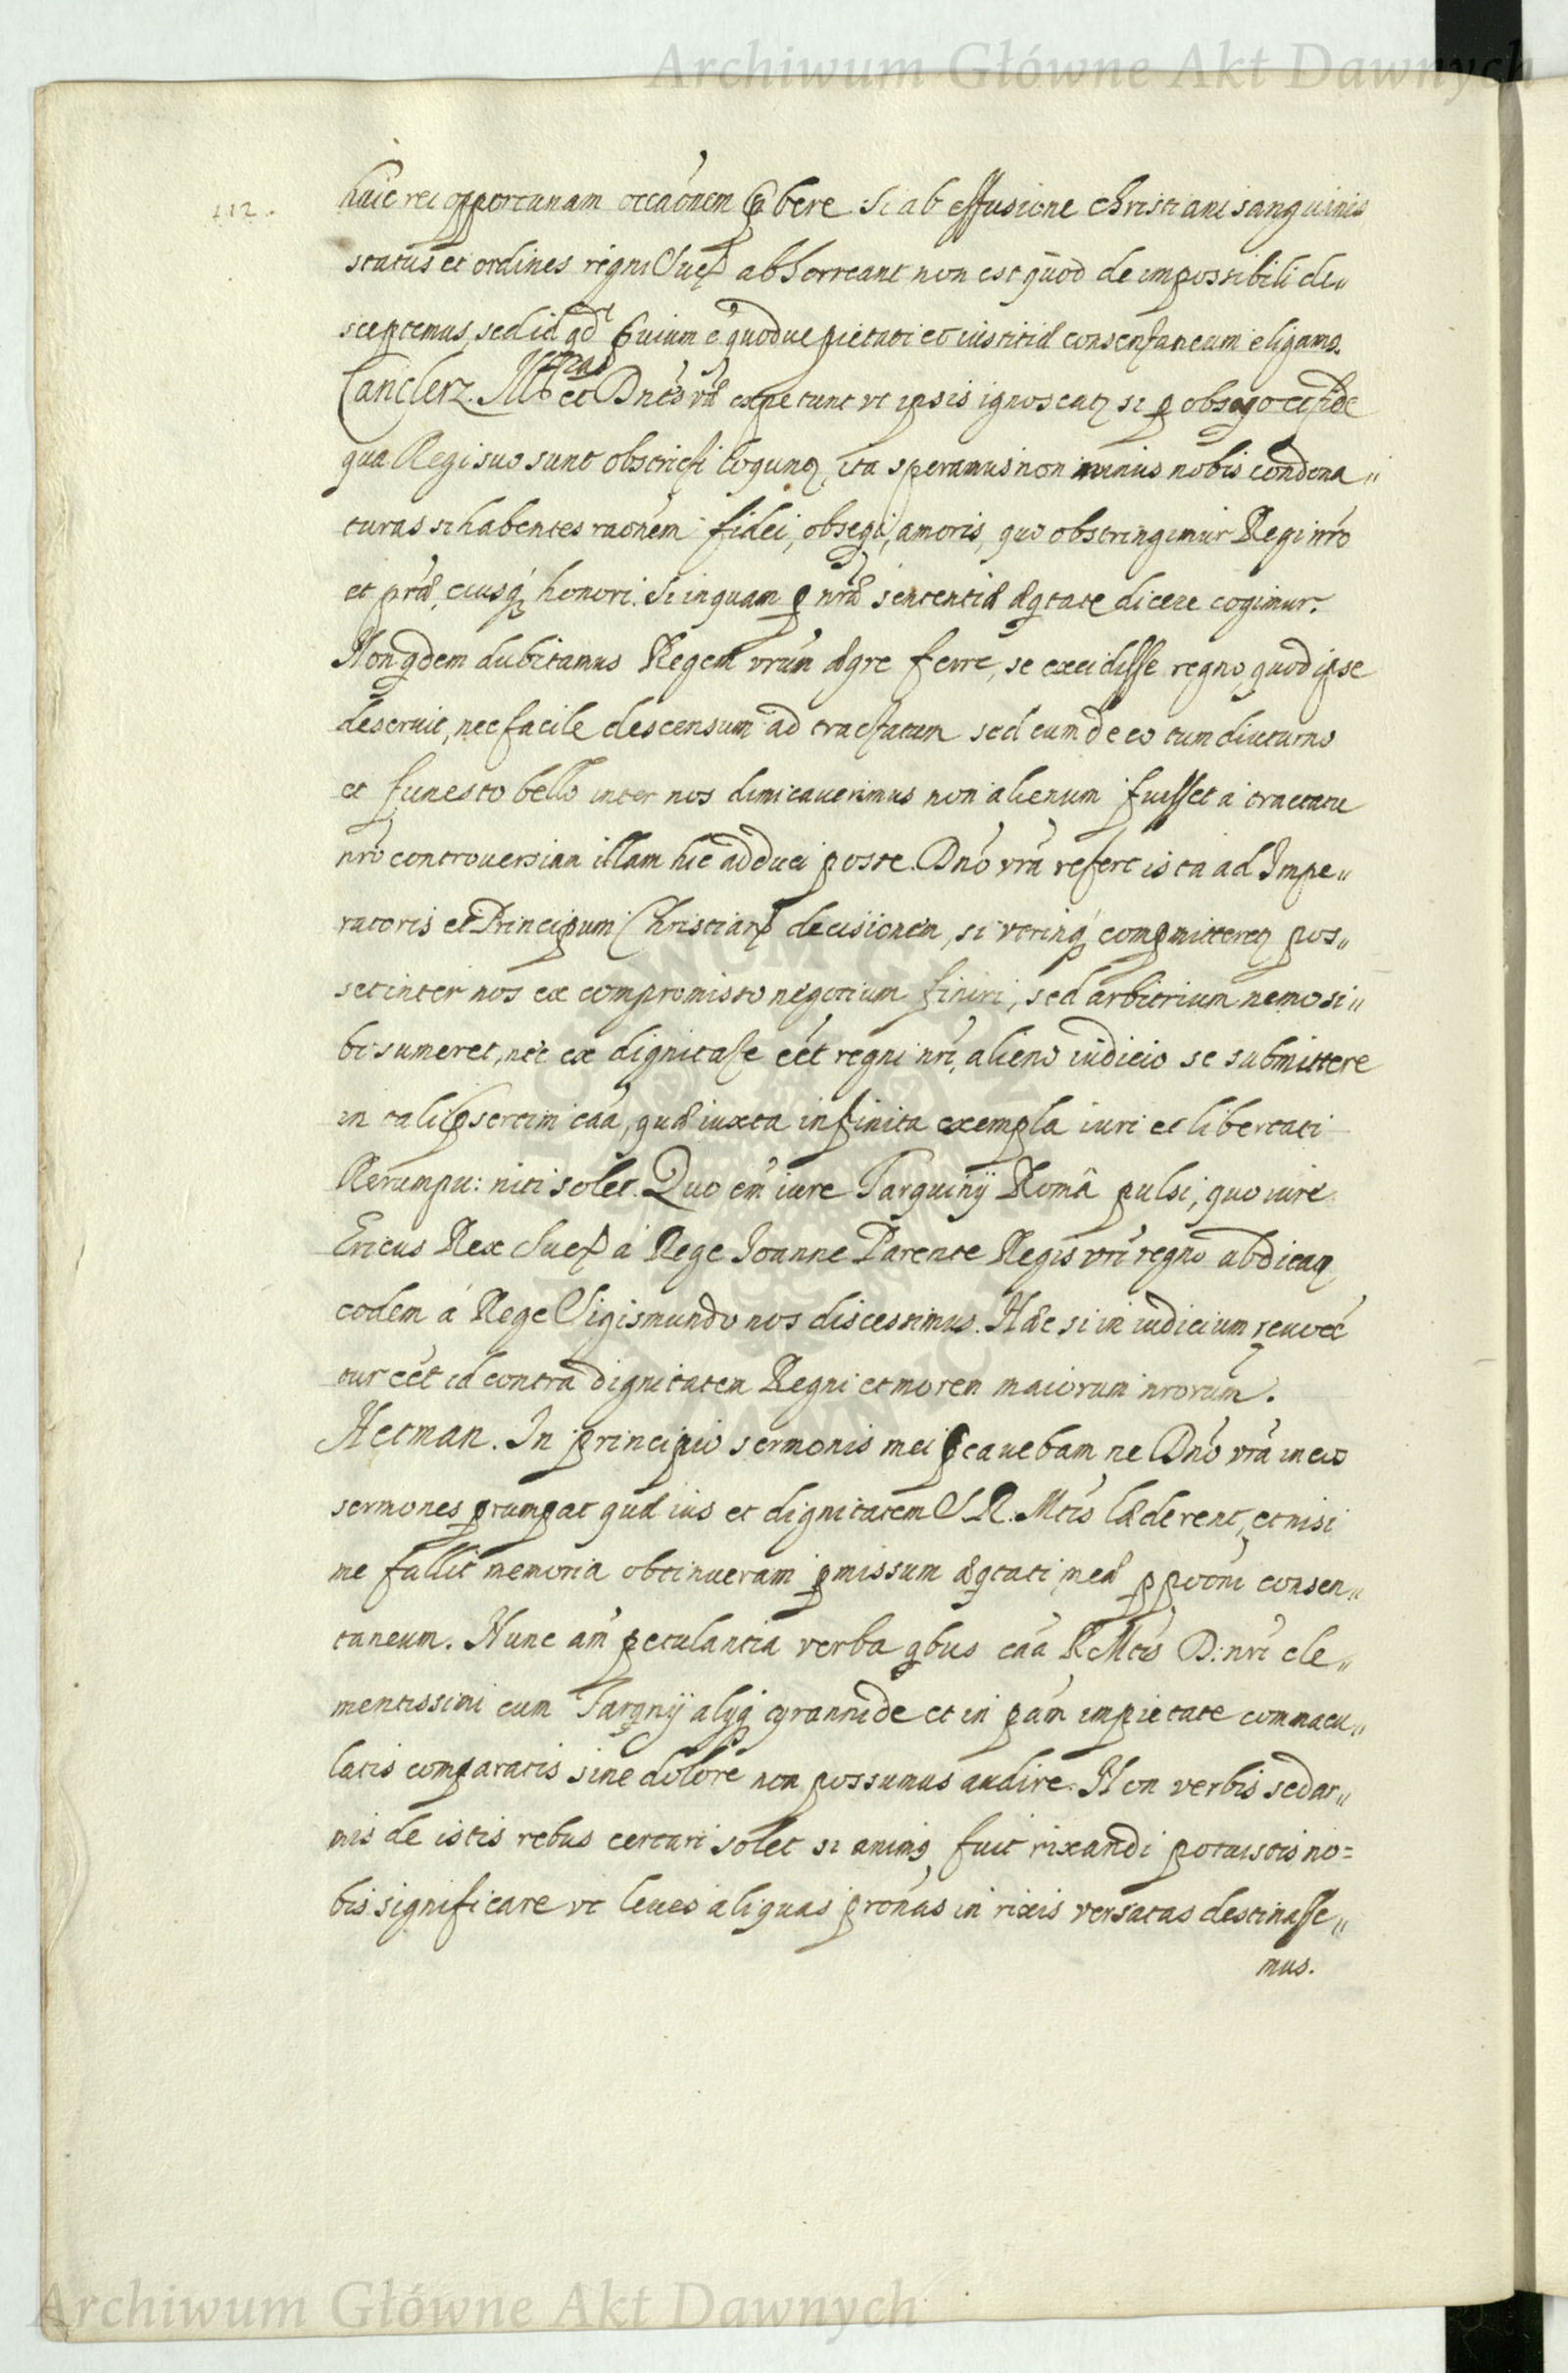 Archiwum Główne Akt Dawnych
112.
huic rei opportunam occaōnem p̄bere. Si ab effusione christiani sanguinis
status et ordines regni Sueꝭ abhorreant non est qūod de impossibili di„
sceptemus, sed id qd p̄uium ē quodue pietati et iustitiæ consentaneum eligamꝰ.
Canclerz. Illmas et Dnēs vrǣ expetunt vt ipsis ignoscatꝫ si ꝓ obsequio et fide
qua Regi suo sunt obstricti loquunꝫ, ita speramus non minus nobis condona„
turas si habentes raōnem fidei, obseqi, amoris, quo obstringimur Regi nrō
et prǣ, eiusq́ꝫ honori. Si inquam ꝓ nrǣ sententiæ æqtate dicere cogimur.
Non qdem dubitamus Regem vrūm ægre ferre, se excidisse regno, quod ipse
deseruit, nec facile descensum ad tractatum sed cum de eo tum diuturno
et funesto bello inter nos dimicauerimus non alienum fuisset a tractatu
nrō controuersiam illam hic adduci posse. Dnō vrā refert ista ad Impe„
ratoris et Principum Christianꝝ decisionem, si vtrinq́ compmitteretꝫ pos„
set inter nos ex compromisso negotium finiri, sed arbitrium nemo si„
bi sumeret, nec ex dignitate eēt regni nrī, alieno iudicio se submittere
in tali p̄sertim caā, quæ iuxta infinita exempla iuri et libertati
Rerumpu: niti solet. Quo em̄ iure Tarquinij Româ pulsi, quo iure
Ericus Rex Sueꝭ á Rege Joanne Parente Regis vrī regno abdicatꝰ
eodem á Rege Sigismundo nos discessimus. Hæc si in iudicium reuocē
tur eēt id contra dignitatem Regni et morem maiorum nrorum.
Hetman. In principio sermonis mei p̄cauebam ne Dnō vrā in eos
sermones prumpat quæ ius et dignitatem S. R. Mtis læderent, et nisi
me fallit memoria obtinueram pmissum æqtati meæ ppōni consen„
taneum. Nunc am̄ petulantia verba qbus caā R Mtis D. nrī cle„
mentissimi cum Tarqnij alijq́ tyrannide et in pām impietate commacu„
latis comparatis sine dolore non possumus audire. Non verbis sed ar„
mis de istis rebus certari solet si animꝰ fuit rixandi potuistis no=
bis significare vt leues aliquas pronas in rixis versatas destinasse„
mus.
Archiwum Główne Akt Dawnych